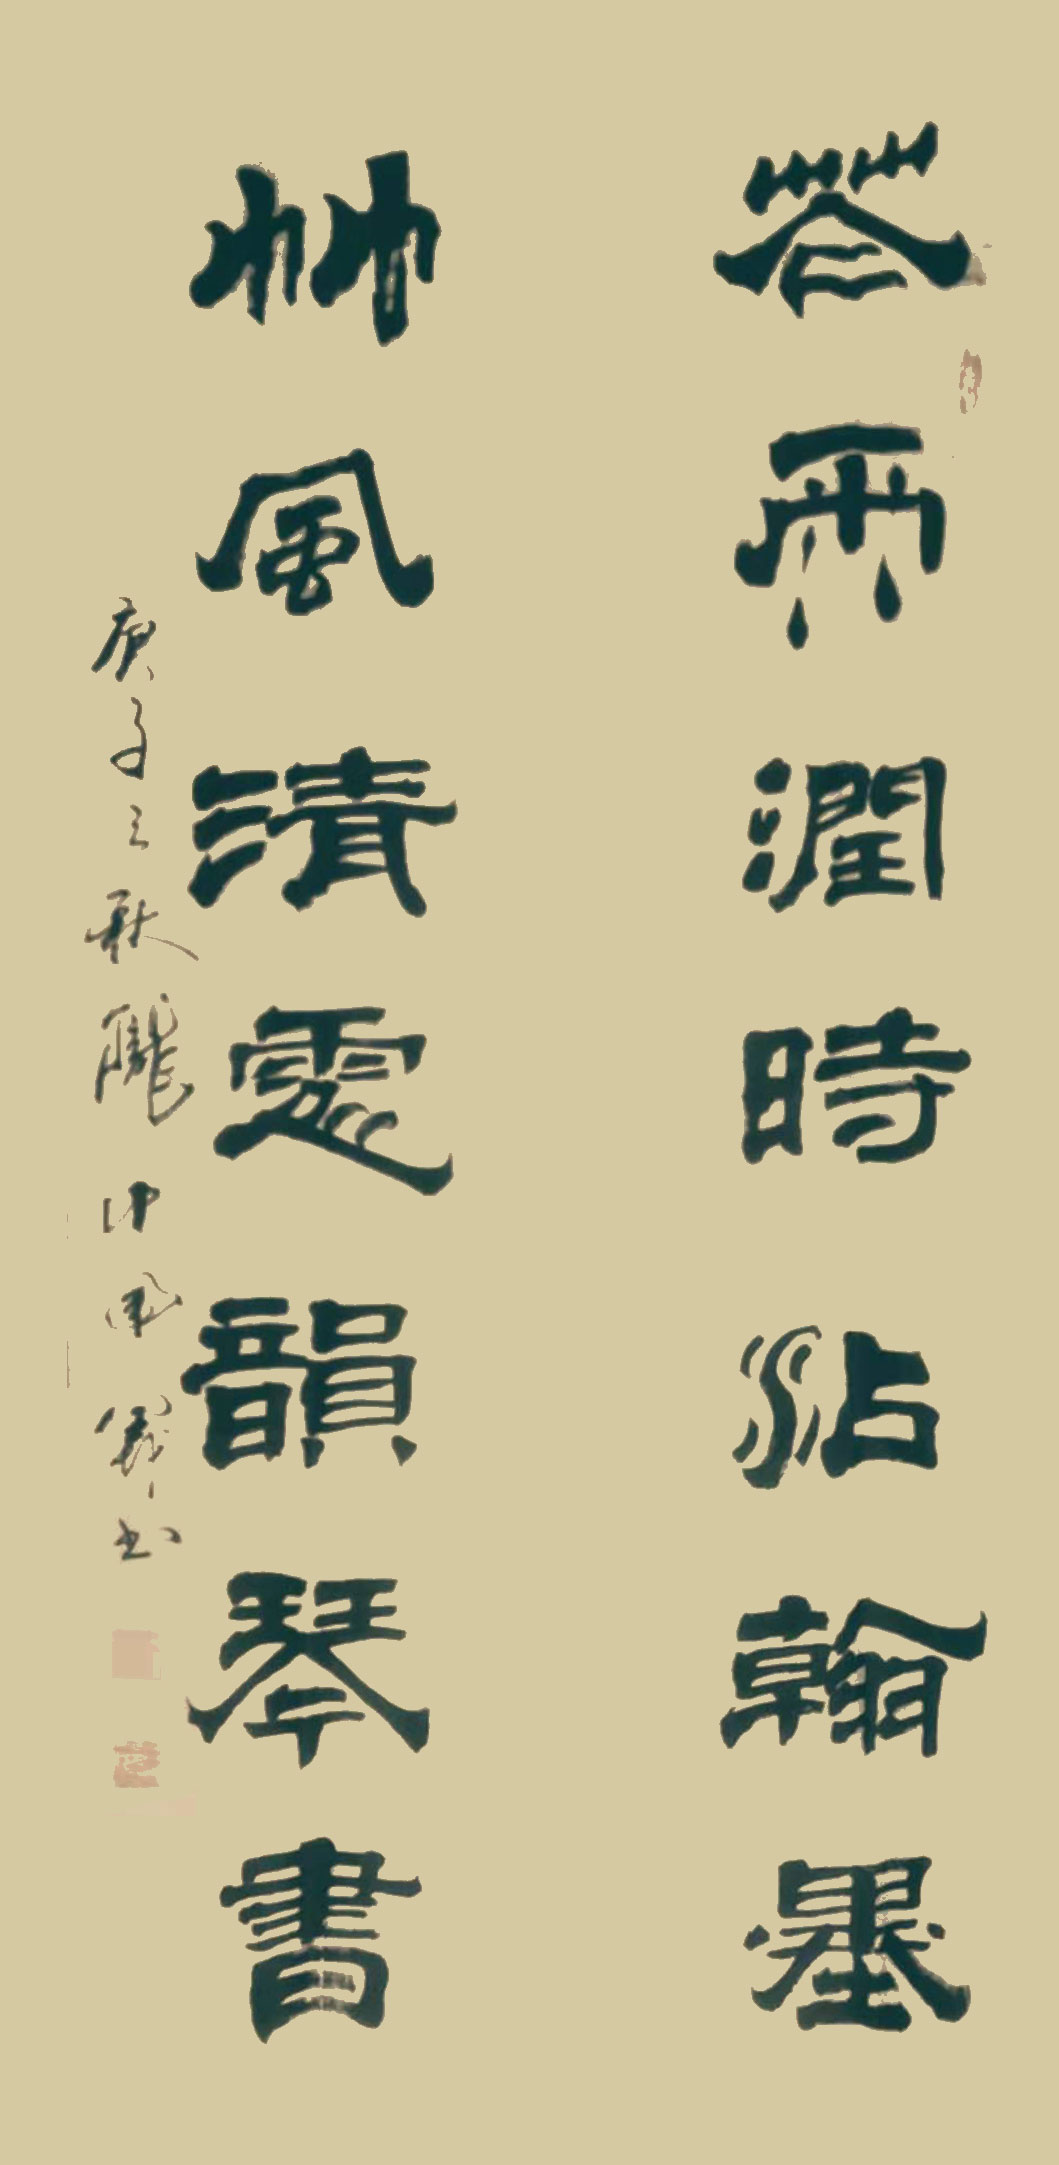 花雨潤時沾翰墨
竹風清處韻琴書
庚子之秋隴中周軍書